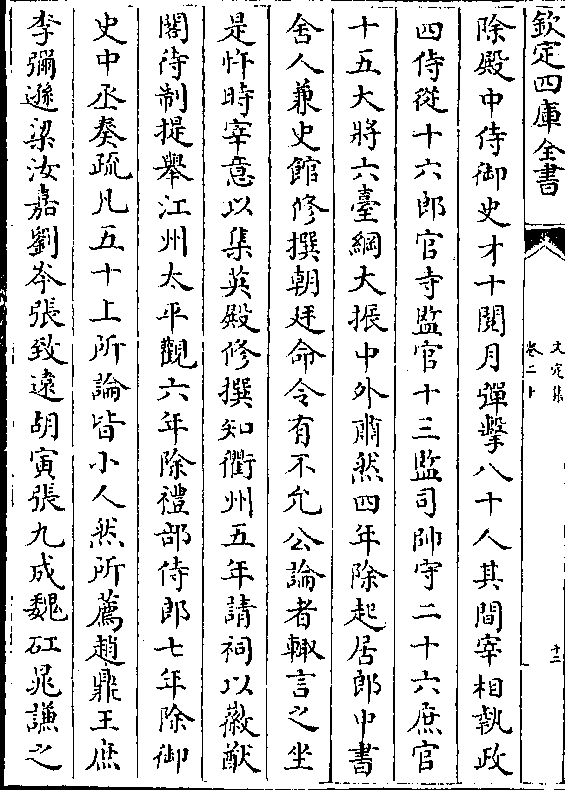 欽定四庫全書
文定集
卷二十
十二
除殿中侍御史才十閱月彈擊八十人其間宰相執政
四侍從十六郎官寺監官十三監司帥守二十六庶官
十五大將六臺綱大振中外肅然四年除起居郎中書
舍人兼史館修撰朝廷命令有不允公論者輙言之坐
是忤時宰意以集英殿修撰知衢州五年請祠以徽猷
閣待制提舉江州太平觀六年除禮部侍郎七年除御
史中丞奏疏凡五十上所論皆小人然所薦趙鼎王庶
李彌遜梁汝嘉劉岑張致遠胡寅張九成魏矼晁謙之